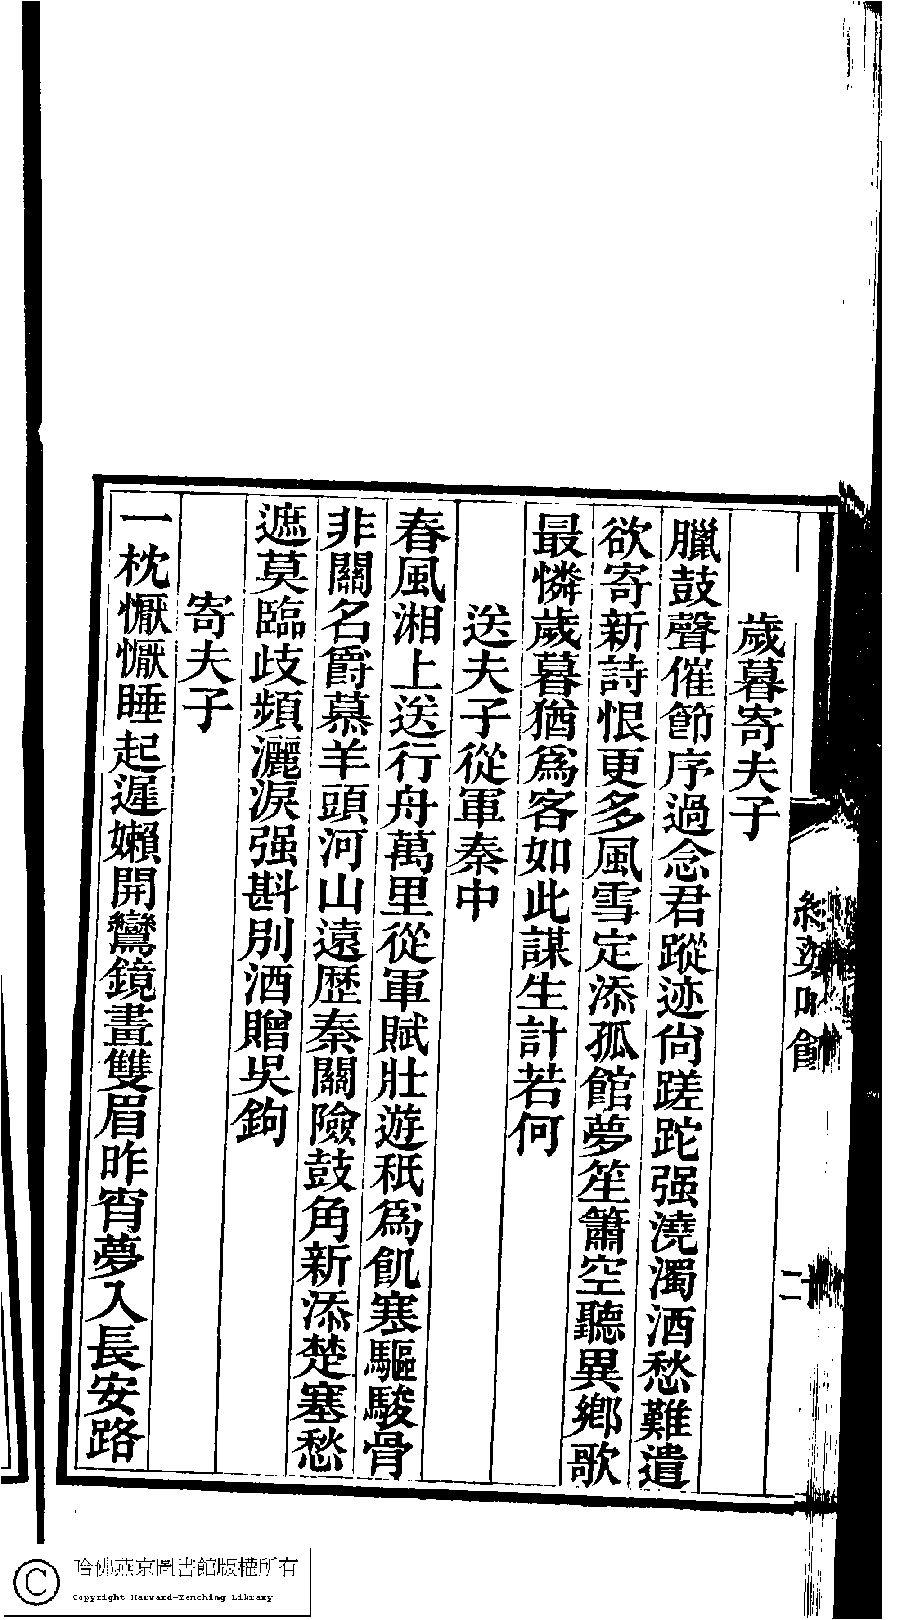 歲暮寄夫子
臘鼓聲催節序過念君蹤迹尙蹉跎强澆濁酒愁難遣
欲寄新詩恨更多風雪定添孤館夢笙簫空聽異鄉歌
最憐歲暮猶爲客如此謀生計若何
送夫子從軍秦中
春風湘上送行舟萬里從軍賦壯遊秖爲飢寒驅駿骨
非關名爵慕羊頭河山遠歷秦關險鼓角新添楚塞愁
遮莫臨歧頻灑淚强斟別酒贈吳鉤
寄夫子
一枕懨懨睡起遲嬾開鸞鏡畫雙眉昨宵夢入長安路
哈佛燕京圖書館版權所有
Copyright Harvard-Yenching Library